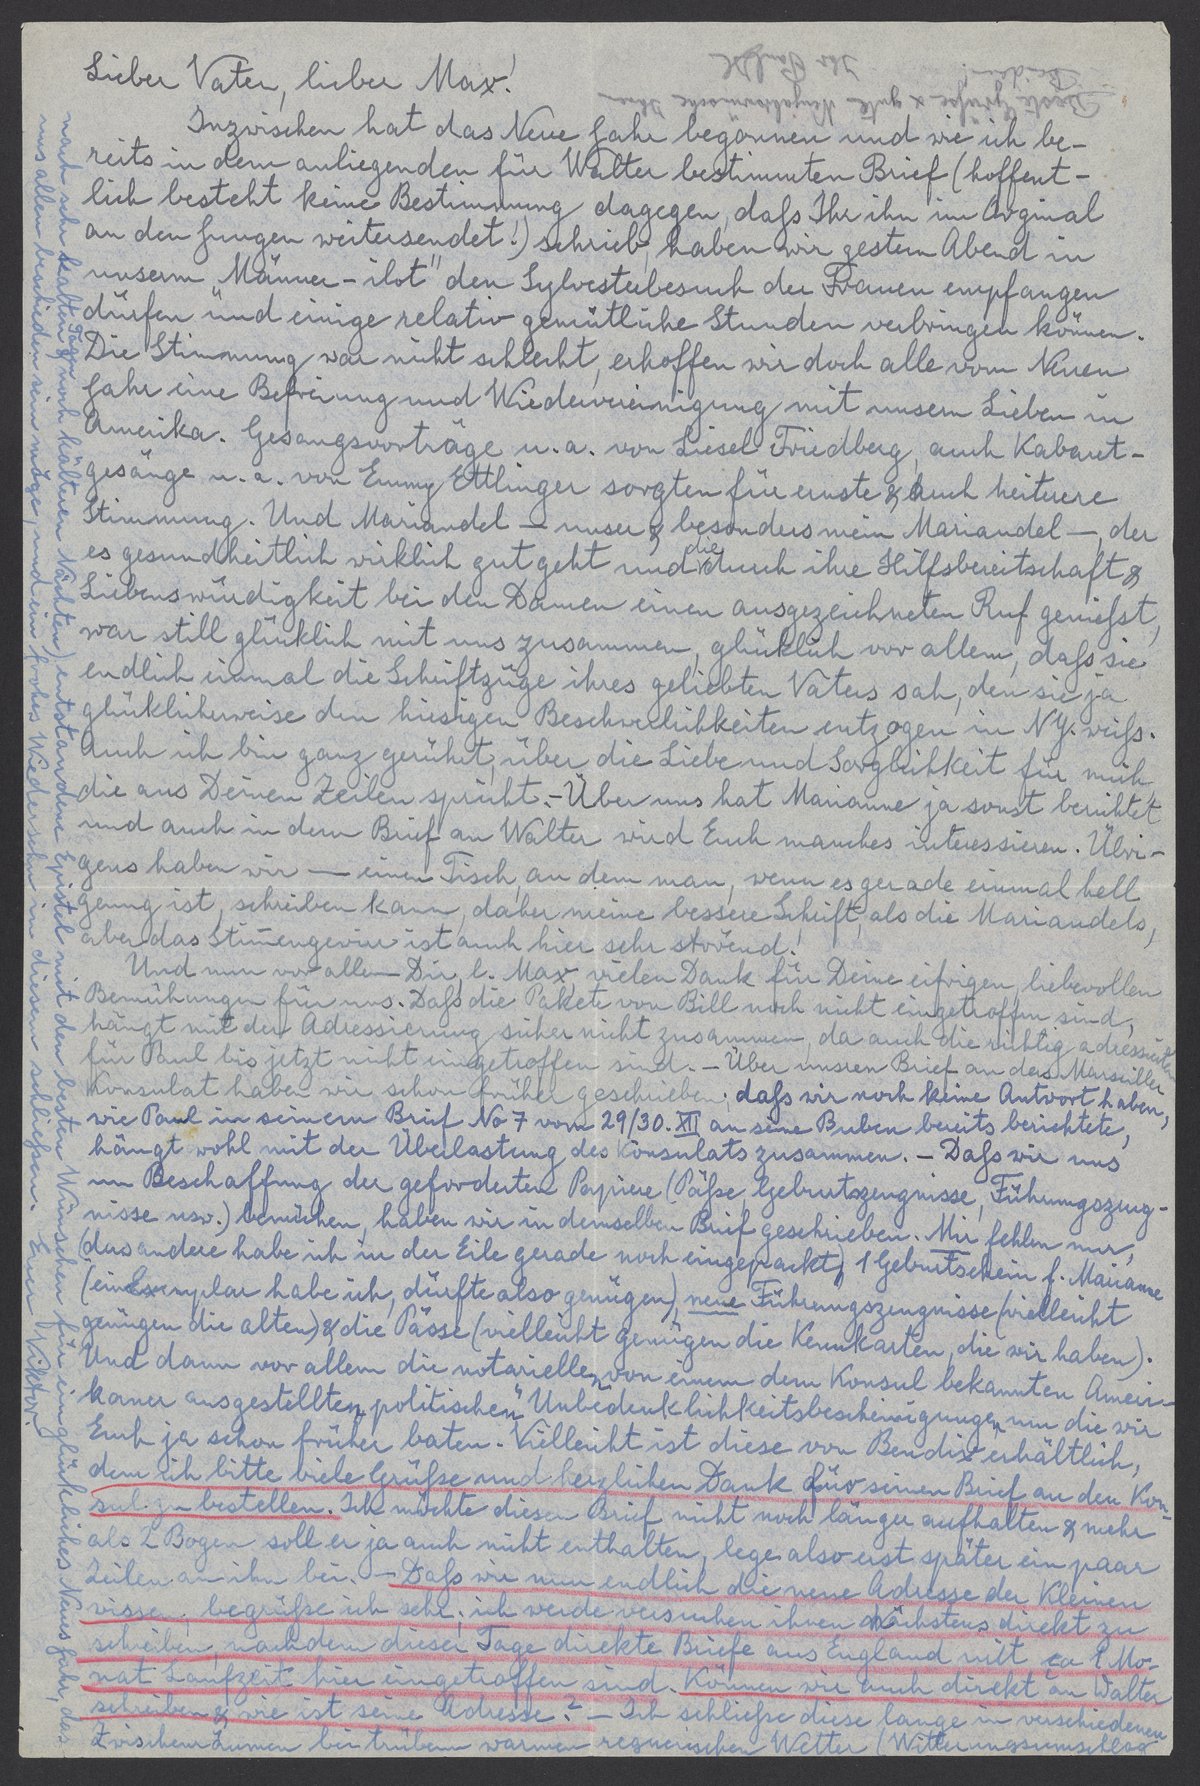 Lieber Vater, lieber Max!
Inzwischen hat das Neue Jahr begonnen und wie ich be-
reits in dem anliegenden für Walter bestimmten Brief (hoffent-
lich besteht keine Bestimmung dagegen, dass Ihr ihn im Orginal
an den Jungen weitersendet!) schrieb, haben wir gestern Abend in
unserm "Männer-ilot" den Sylvesterbesuch der Frauen empfangen
dürfen und einige relativ gemütliche Stunden verbringen können.
Die Stimmung war nicht schlecht, erhoffen wir doch alle vom Neuen
Jahr eine Befreiung und Wiedervereinigung mit unsern Lieben in
Amerika. Gesangsvorträge u. a. von Liesel Friedberg, auch Kabaret-
gesänge u. a. von Emmy Ettlinger sorgten für ernste & auch heiterere
Stimmung. Und Mariandel – unser & besonders mein Mariandel –, der
es gesundheitlich wirklich gut geht und die durch ihre Hilfsbereitschaft &
Liebenswürdigkeit bei den Damen einen ausgezeichneten Ruf geniesst,
war still glücklich mit uns zusammen, glücklich vor allem, dass sie
endlich einmal die Schriftzüge ihres geliebten Vaters sah, den sie ja
glücklicherweise den hiesigen Beschwerlichkeiten entzogen in N.Y. weiss.
Auch ich bin ganz gerührt, über die Liebe und Sorglichkeit für mich,
die aus Deinen Zeilen spricht. – Über uns hat Marianne ja sonst berichtet
und auch in dem Brief an Walter wird Euch manches interessieren. Übri-
gens haben wir – einen Tisch, an dem man, wenn es gerade einmal hell
genug ist, schreiben kann, daher meine bessere Schrift, als die Mariandels,
aber das Stimmengewirr ist auch hier sehr störend!
Und nun vor allem Dir, l. Max, vielen Dank für Deine eifrigen, liebevollen
Bemühungen für uns. Dass die Pakete von Bill noch nicht eingetroffen sind,
hängt mit der Adressierung sicher nicht zusammen, da auch die richtig adressierten
für Paul bis jetzt nicht eingetroffen sind. – Über unsren Brief an das Marseiller
Konsulat haben wir schon früher geschrieben; dass wir noch keine Antwort haben,
wie Paul in seinem Brief No 7 vom 29/30. XII an seine Buben bereits berichtete,
hängt wohl mit der Überlastung des Konsulats zusammen. – Dass wir uns
um Beschaffung der geforderten Papiere (Pässe, Geburtszeugnisse, Führungszeug-
nisse usw.) bemühen, haben wir in demselben Brief geschrieben. Mir fehlen nur,
(das andere habe ich in der Eile gerade noch eingepackt), 1 Geburtsschein f. Marianne
(ein Exemplar habe ich, dürfte also genügen), neue Führungszeugnisse (vielleicht
genügen die alten) & die Pässe (vielleicht genügen die Kennkarten, die wir haben).
Und dann vor allem die notariellen von einem dem Konsul bekannten Ameri-
kaner ausgestellten "politischen" Unbedenklichkeitsbescheinigungen, um die wir
Euch ja schon früher baten. Vielleicht ist diese von Bendix erhältlich,
dem ich bitte viele Grüsse und herzlichen Dank für seinen Brief an den Kon-
sul zu bestellen. Ich möchte diesen Brief nicht noch länger aufhalten & mehr
als 2 Bogen soll er ja auch nicht enthalten, lege also erst später ein paar
Zeilen an ihn bei. – Dass wir nun endlich die neue Adresse der Kleinen
wissen, begrüsse ich sehr; ich werde versuchen ihnen nächstens direkt zu
schreiben, nachdem dieser Tage direkte Briefe aus England mit ca 1 Mo-
nat Laufzeit hier eingetroffen sind. Können wir auch direkt an Walter
schreiben & wie ist seine Adresse? – Ich schliesse diese lange in verschiedenen
Zwischenräumen bei trübem warmen regnerischen Wetter (Witterungsumschlag
nach sehr kalten Tagen & noch kälteren Nächten) entstandene Epistel mit den besten Wünschen für ein glückliches Neues Jahr, das
uns allen beschieden sein möge, und ein frohes Wiedersehn in diesem schliessen. Euer Viktor.
Beste Grüsse & gute Neujahrswünsche Ihnen
Beiden!
Ihr Paul